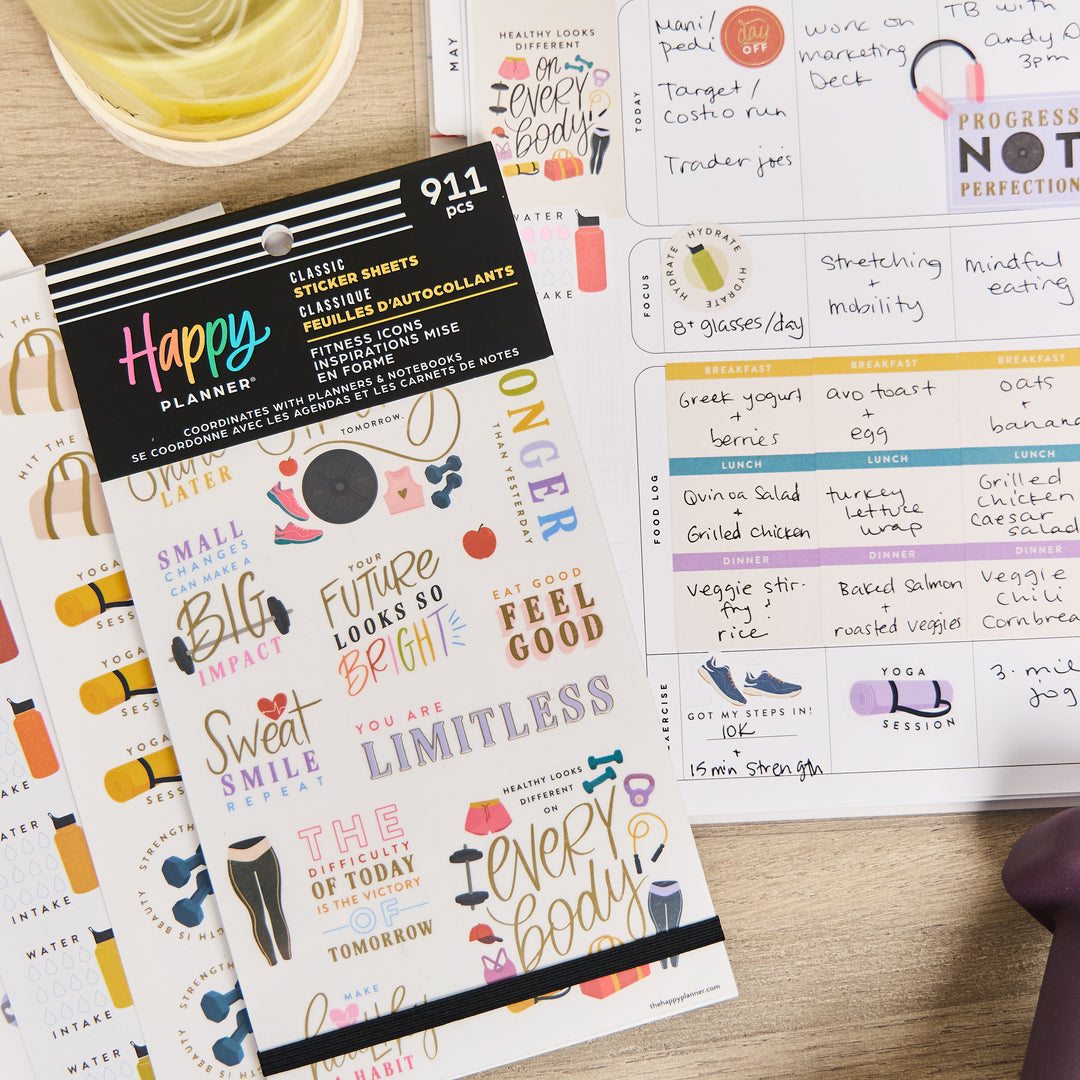 911
pcs
CLASSIC
STICKER SHEETS
CLASSIQUE
FEUILLES D'AUTOCOLLANTS
FITNESS ICONS
INSPIRATIONS MISE
EN FORME
Happy
PLANNER®
COORDINATES WITH PLANNERS & NOTEBOOKS
SE COORDONNE AVEC LES AGENDAS ET LES CARNETS DE NOTES
TOMORROW.
LATER
ONGER
THAN YESTERDAY
SMALL
CHANGES
CAN MAKE A
BIG
IMPACT
YOUR
FUTURE
LOOKS SO
BRIGHT
EAT GOOD
FEEL
GOOD
Sweat
SMILE
REPEAT
YOU ARE
LIMITLESS
THE
DIFFICULTY
OF TODAY
IS THE VICTORY
OF
TOMORROW
HEALTHY LOOKS
DIFFERENT
ON
eVeRY
body
MAKE
A HABIT
thehappyplanner.com
HIT THE
YOGA
SESS
YOGA
SESS
YOGA
SESS
STRENGTH
IS BEAUTY
STRENGTH
IS BEAUTY
AKE
WATER
INTAKE
WATER
INTAKE
WATER
MAY
HEALTHY LOOKS
DIFFERENT
on
eVeRY
body
WATER
TAKE
TODAY
Mani/
pedi
day
OFF
Target/
Costco run
Trader joe's
work on
marketing
Deck
TB with
andy
3pm
PROGRESS
NOT
PERFECTION
FOCUS
HYDRATE HYDRATE HYDRATE
8+ glasses/day
Stretching
+
mobility
mindful
eating
FOOD LOG
BREAKFAST
Greek yogurt
+
berries
BREAKFAST
avo toast
+
egg
BREAKFAST
oats
+
banana
LUNCH
Quinoa Salad
+
Grilled chicken
LUNCH
turkey
lettuce
wrap
LUNCH
Grilled
chicken
Caesar
salad
DINNER
veggie stir-
fry &
rice
DINNER
Baked salmon
+
roasted veggies
DINNER
veggie
chili
cornbrea
GOT MY STEPS IN!
10K
+
15 min strength
YOGA
SESSION
jog